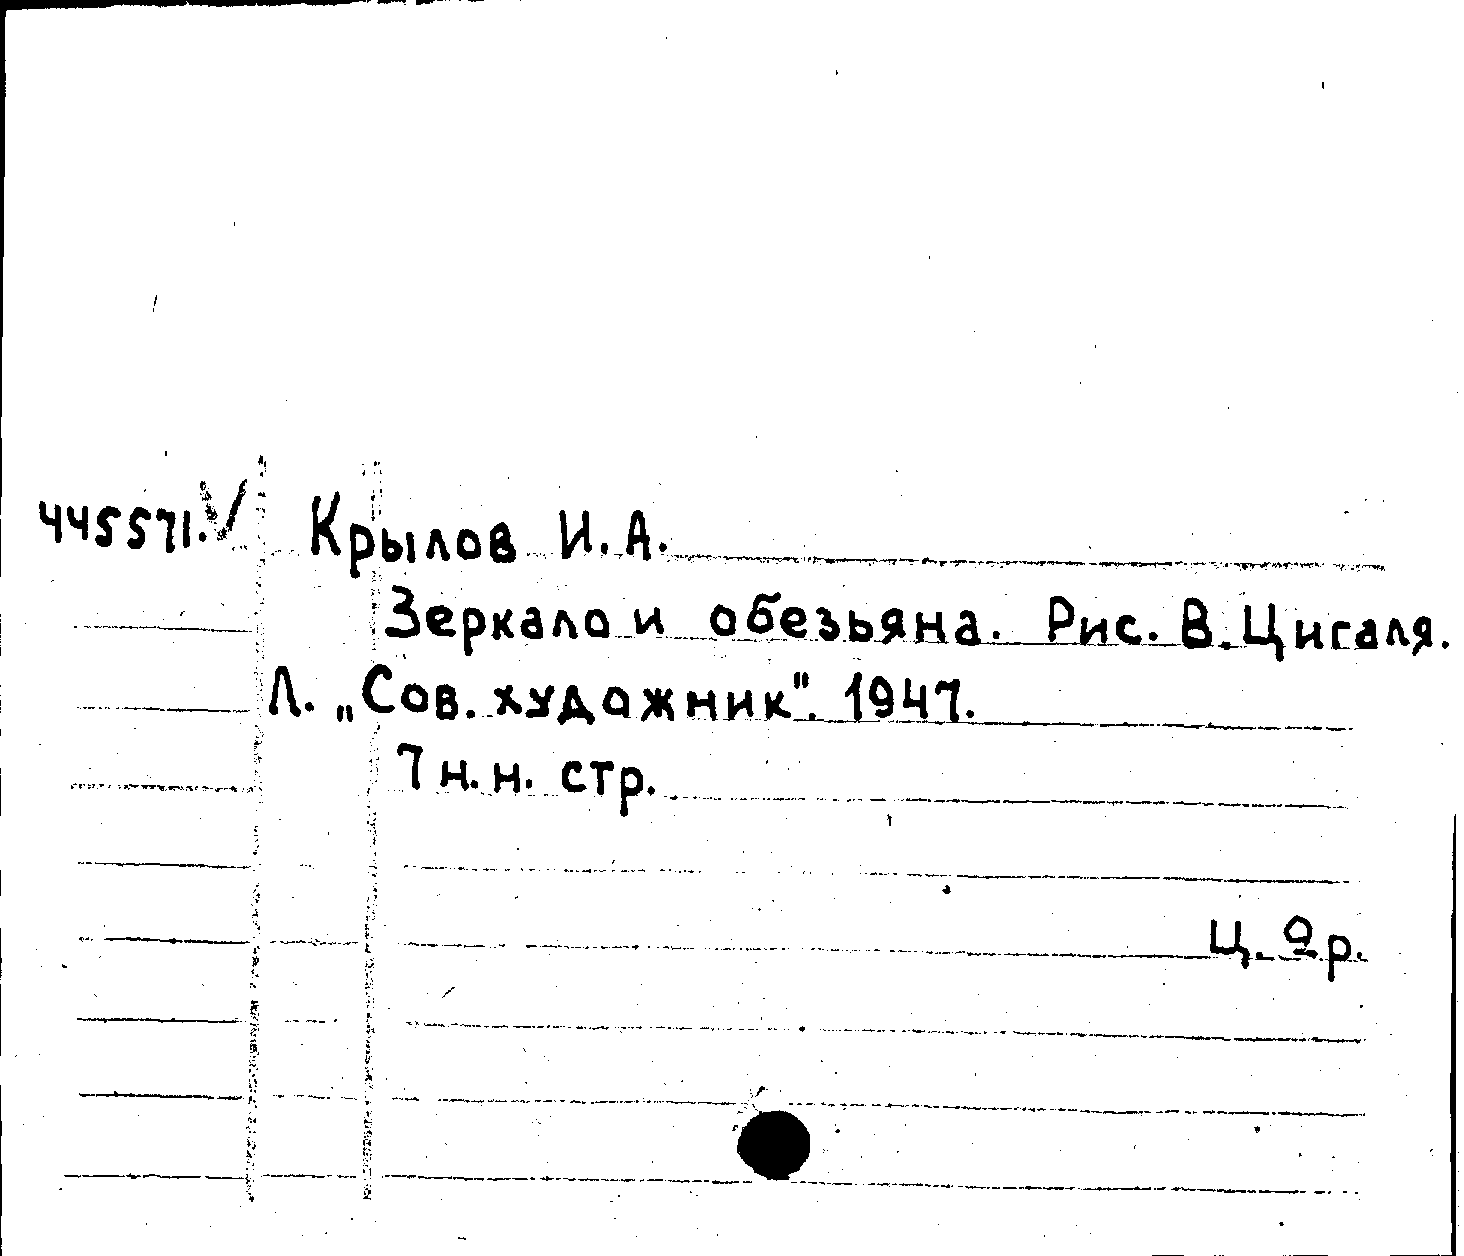 445571. V Крылов И.А.
Зеркало и обезьяна. Рис. В. Цигаля.
Л. „Сов. художник". 1947.
7 н.н. стр.
Ц. 2 р.